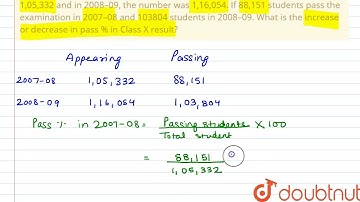 1,05,332 and in 2008–09, the number was 1,16,054. If 88,151 students pass the
examination in 2007–08 and 103804 students in 2008–09. What is the increase
or decrease in pass % in Class X result?
Appearing Passing
2007-08 1,05,332 88,151
2008-09 1,16,054 1,03,804
Pass % in 2007-08 = Passing students × 100
Total student
= 88,151
1,05,332
doubtnut